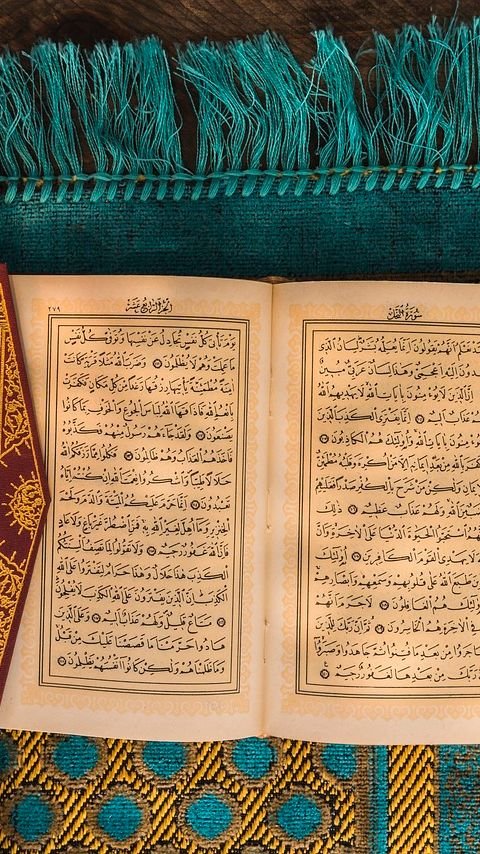 سُورَةُ النَّحْلِ
نَعْلَمُ اَنَّهُمْ يَقُولُونَ اِنَّمَا يُعَلِّمُهُ بَشَرٌ لِسَانُ الَّذِى
اِلَيْهِ اَعْجَمِىٌّ وَهٰذَا لِسَانٌ عَرَبِىٌّ مُبِينٌ
اِنَّ الَّذِينَ لَا يُؤْمِنُونَ بِاٰيَاتِ اللّٰهِ لَا يَهْدِيهِمُ اللّٰهُ
عَذَابٌ اَلِيمٌ ﴿١٠٤﴾ اِنَّمَا يَفْتَرِى الْكَذِبَ الَّذِينَ
يُؤْمِنُونَ بِاٰيَاتِ اللّٰهِ وَاُولٰئِكَ هُمُ الْكَاذِبُونَ ﴿١٠٥﴾
بِاللّٰهِ مِنْ بَعْدِ اِيمَانِهِ اِلَّا مَنْ اُكْرِهَ وَقَلْبُهُ مُطْمَئِنٌّ
وَلٰكِنْ مَنْ شَرَحَ بِالْكُفْرِ صَدْرًا فَعَلَيْهِمْ
مِنَ اللّٰهِ وَلَهُمْ عَذَابٌ عَظِيمٌ ﴿١٠٦﴾ ذٰلِكَ
اسْتَحَبُّوا الْحَيٰوةَ الدُّنْيَا عَلَى الْاٰخِرَةِ وَاَنَّ
لَا يَهْدِى الْقَوْمَ الْكَافِرِينَ ﴿١٠٧﴾ اُولٰئِكَ
طَبَعَ اللّٰهُ عَلٰى قُلُوبِهِمْ وَسَمْعِهِمْ وَاَبْصَارِهِمْ
وَاُولٰئِكَ هُمُ الْغَافِلُونَ ﴿١٠٨﴾ لَا جَرَمَ اَنَّهُمْ
فِى الْاٰخِرَةِ هُمُ الْخَاسِرُونَ ﴿١٠٩﴾ ثُمَّ اِنَّ رَبَّكَ لِلَّذِينَ
هَاجَرُوا مِنْ بَعْدِ مَا فُتِنُوا ثُمَّ جَاهَدُوا وَصَبَرُوا
رَبَّكَ مِنْ بَعْدِهَا لَغَفُورٌ رَحِيمٌ ﴿١١٠﴾
اَلْجُزْءُ الرَّابِعَ عَشَرَ
٢٧٩
يَوْمَ تَأْتِى كُلُّ نَفْسٍ تُجَادِلُ عَنْ نَفْسِهَا وَتُوَفّٰى كُلُّ نَفْسٍ
مَا عَمِلَتْ وَهُمْ لَا يُظْلَمُونَ ﴿١١١﴾ وَضَرَبَ اللّٰهُ مَثَلًا قَرْيَةً كَانَتْ
اٰمِنَةً مُطْمَئِنَّةً يَأْتِيهَا رِزْقُهَا رَغَدًا مِنْ كُلِّ مَكَانٍ فَكَفَرَتْ
بِاَنْعُمِ اللّٰهِ فَاَذَاقَهَا اللّٰهُ لِبَاسَ الْجُوعِ وَالْخَوْفِ بِمَا كَانُوا
يَصْنَعُونَ ﴿١١٢﴾ وَلَقَدْ جَاءَهُمْ رَسُولٌ مِنْهُمْ فَكَذَّبُوهُ
فَاَخَذَهُمُ الْعَذَابُ وَهُمْ ظَالِمُونَ ﴿١١٣﴾ فَكُلُوا مِمَّا رَزَقَكُمُ اللّٰهُ
حَلَالًا طَيِّبًا وَاشْكُرُوا نِعْمَتَ اللّٰهِ اِنْ كُنْتُمْ اِيَّاهُ
تَعْبُدُونَ ﴿١١٤﴾ اِنَّمَا حَرَّمَ عَلَيْكُمُ الْمَيْتَةَ وَالدَّمَ وَلَحْمَ
الْخِنْزِيرِ وَمَا اُهِلَّ لِغَيْرِ اللّٰهِ بِهِ فَمَنِ اضْطُرَّ غَيْرَ بَاغٍ وَلَا عَادٍ
فَاِنَّ اللّٰهَ غَفُورٌ رَحِيمٌ ﴿١١٥﴾ وَلَا تَقُولُوا لِمَا تَصِفُ اَلْسِنَتُكُمُ
الْكَذِبَ هٰذَا حَلَالٌ وَهٰذَا حَرَامٌ لِتَفْتَرُوا عَلَى اللّٰهِ
الْكَذِبَ اِنَّ الَّذِينَ يَفْتَرُونَ عَلَى اللّٰهِ الْكَذِبَ لَا يُفْلِحُونَ
﴿١١٦﴾ مَتَاعٌ قَلِيلٌ وَلَهُمْ عَذَابٌ اَلِيمٌ ﴿١١٧﴾ وَعَلَى الَّذِينَ
هَادُوا حَرَّمْنَا مَا قَصَصْنَا عَلَيْكَ مِنْ قَبْلُ
وَمَا ظَلَمْنَاهُمْ وَلٰكِنْ كَانُوا اَنْفُسَهُمْ يَظْلِمُونَ ﴿١١٨﴾